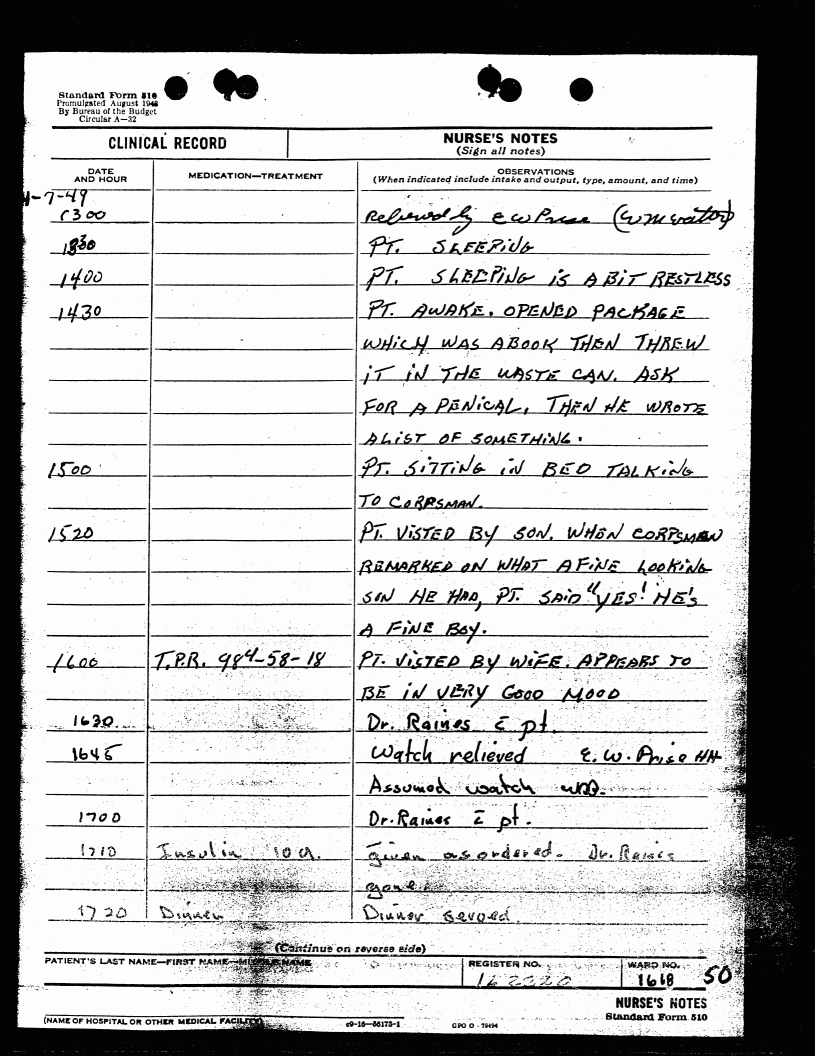 Standard Form 510
Promulgated August 1948
By Bureau of the Budget
Circular A—32
CLINICAL RECORD
NURSE'S NOTES
(Sign all notes)
DATE AND HOUR
MEDICATION—TREATMENT
OBSERVATIONS
(When indicated include intake and output, type, amount, and time)
4-7-49
1300 Relieved by E W Prise
1330 PT. SLEEPING
1400 PT. SLEEPING IS A BIT RESTLESS
1430 PT. AWAKE. OPENED PACKAGE
WHICH WAS A BOOK THEN THREW
IT IN THE WASTE CAN. ASK
FOR A PENICAL, THEN HE WROTE
A LIST OF SOMETHING.
1500 PT. SITTING IN BED TALKING
TO CORPSMAN.
1520 PT. VISTED BY SON. WHEN CORPSMAN
REMARKED ON WHAT A FINE LOOKING
SON HE HAD, PT. SAID "YES! HE'S
A FINE BOY.
1600 T.P.R. 98⁴-58-18 PT. VISTED BY WIFE. APPEARS TO
BE IN VERY GOOD MOOD
1630 Dr. Raines c̄ pt.
1645 Watch relieved E. W. Prise HN
Assumed watch
1700 Dr. Raines c̄ pt.
1710 Insulin 10 u. given as ordered. Dr. Raines
gone.
1720 Dinner Dinner served.
(Continue on reverse side)
PATIENT'S LAST NAME—FIRST NAME—MIDDLE NAME
REGISTER NO.
WARD NO.
1618 50
NURSE'S NOTES
Standard Form 510
(NAME OF HOSPITAL OR OTHER MEDICAL FACILITY)
c9—16—56173-1
GPO O - 79494